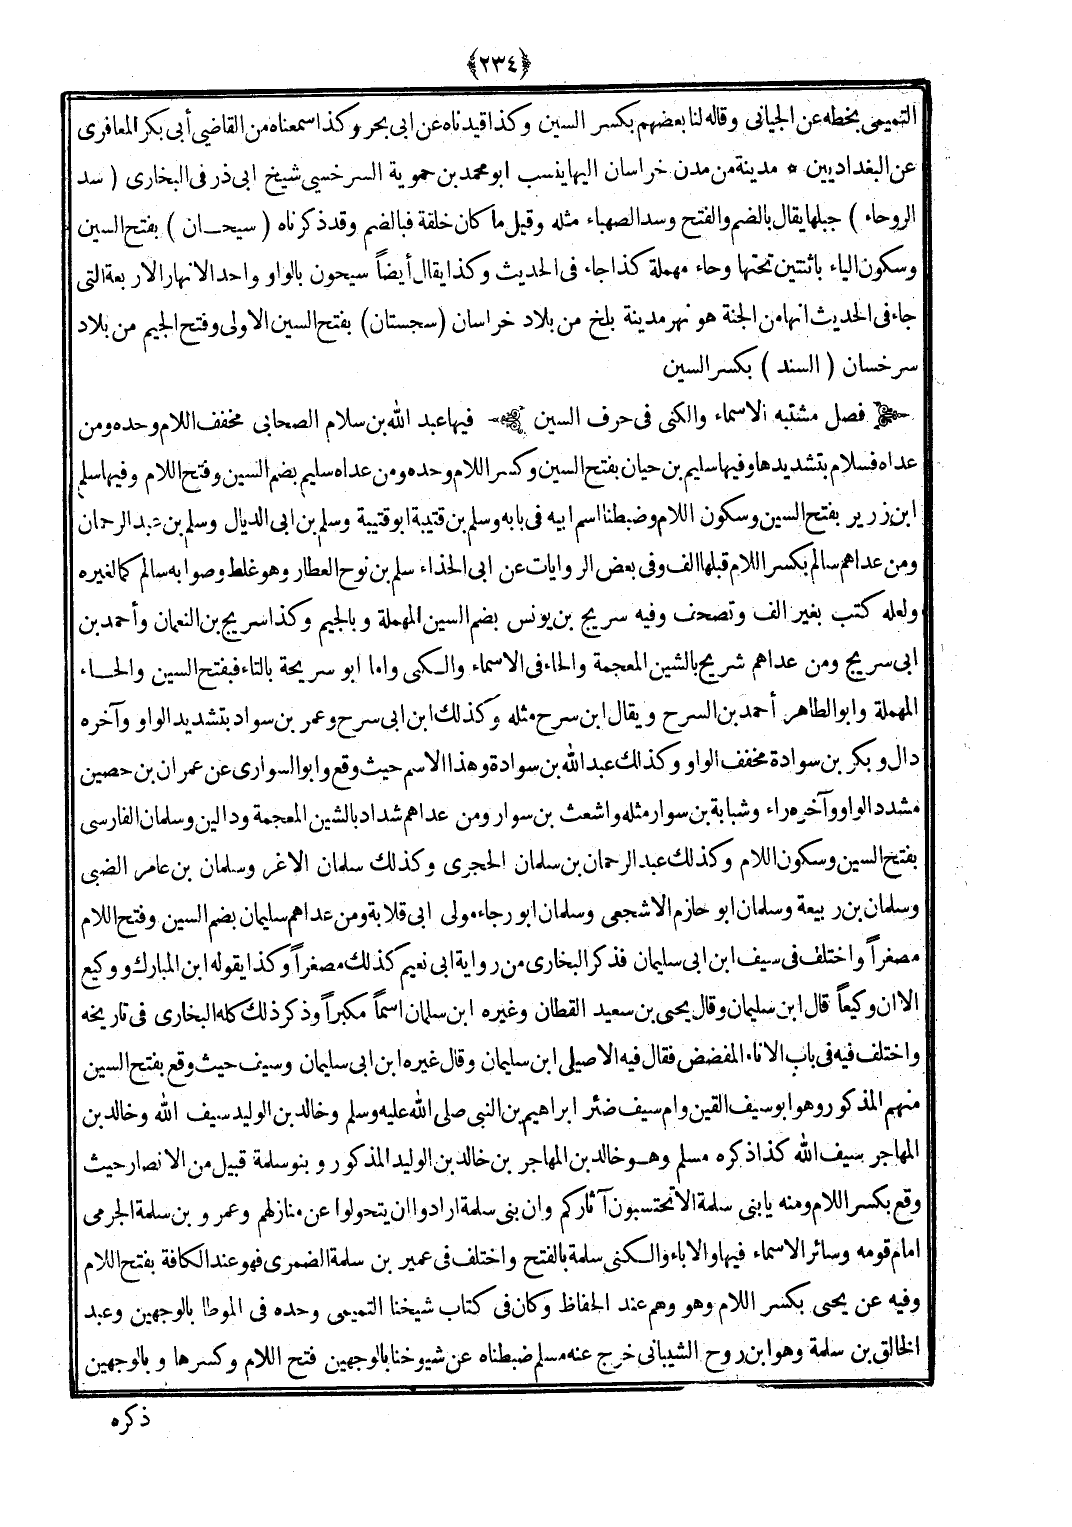 ﴿٢٣٤﴾
التميمى بخطه عن الجيانى وقاله لنا بعضهم بكسر السين وكذا قيدناه عن ابى بحر وكذا سمعناه من القاضي أبى بكر المعافرى
عن البغداديين * مدينة من مدن خراسان اليها ينسب ابو محمد بن حموية السرخسي شيخ ابى ذر فى البخارى ( سد
الروحاء ) جبلها يقال بالضم والفتح وسد الصهباء مثله وقيل ما كان خلقة فبالضم وقد ذكرناه ( سيحـان ) بفتح السين
وسكون الياء باثنتين تحتها وحاء مهملة كذا جاء فى الحديث وكذا يقال أيضاً سيحون بالواو واحد الانهار الاربعة التى
جاء فى الحديث انها من الجنة هو نهر مدينة بلخ من بلاد خراسان (سجستان) بفتح السين الاولى وفتح الجيم من بلاد
سرخسان ( السند ) بكسر السين
فصل مشتبه الاسماء والكنى فى حرف السين فيها عبد الله بن سلام الصحابى مخفف اللام وحده ومن
عداه فسلام بتشديدها وفيها سليم بن حيان بفتح السين وكسر اللام وحده ومن عداه سليم بضم السين وفتح اللام وفيها سلم
ابن زرير بفتح السين وسكون اللام وضبطنا اسم ابيه فى بابه وسلم بن قتيبة ابو قتيبة وسلم بن ابى الديال وسلم بن عبد الرحمان
ومن عداهم سالم بكسر اللام قبلها الف وفى بعض الروايات عن ابى الحذاء سلم بن نوح العطار وهو غلط وصوابه سالم كما لغيره
ولعله كتب بغير الف وتصحف وفيه سريج بن يونس بضم السين المهملة وبالجيم وكذا سريج بن النعمان وأحمد بن
ابى سريج ومن عداهم شريح بالشين المعجمة والحاء فى الاسماء والكنى واما ابو سريحة بالتاء فبفتح السين والحاء
المهملة وابو الطاهر أحمد بن السرح ويقال ابن سرح مثله وكذلك ابن ابى سرح وعمر بن سواد بتشديد الواو وآخره
دال وبكر بن سوادة مخفف الواو وكذلك عبد الله بن سوادة وهذا الاسم حيث وقع وابو السوارى عن عمران بن حصين
مشدد الواو وآخره راء وشبابة بن سوار مثله واشعث بن سوار ومن عداهم شداد بالشين المعجمة ودالين وسلمان الفارسى
بفتح السين وسكون اللام وكذلك عبد الرحمان بن سلمان الحجرى وكذلك سلمان الاغر وسلمان بن عامر الضبى
وسلمان بن ربيعة وسلمان ابو حازم الاشجعى وسلمان ابو رجاء مولى ابى قلابة ومن عداهم سليمان بضم السين وفتح اللام
مصغراً واختلف فى سيف ابن ابى سليمان فذكر البخارى من رواية ابى نعيم كذلك مصغراً وكذا يقوله ابن المبارك ووكيع
الا ان وكيعاً قال ابن سليمان وقال يحيى بن سعيد القطان وغيره ابن سلمان اسماً مكبراً وذكر ذلك كله البخارى فى تاريخه
واختلف فيه فى باب الاناء المفضض فقال فيه الاصيلى ابن سليمان وقال غيره ابن ابى سليمان وسيف حيث وقع بفتح السين
منهم المذكور وهو ابو سيف القين وام سيف ضئر ابراهيم بن النبى صلى الله عليه وسلم وخالد بن الوليد سيف الله وخالد بن
المهاجر سيف الله كذا ذكره مسلم وهـو خالد بن المهاجر بن خالد بن الوليد المذكور وبنو سلمة قبيل من الانصار حيث
وقع بكسر اللام ومنه يا بنى سلمة الا تحتسبون آثاركم وان بنى سلمة ارادوا ان يتحولوا عن منازلهم وعمرو بن سلمة الجرمى
امام قومه وسائر الاسماء فيها والاباء والكنى سلمة بالفتح واختلف فى عمير بن سلمة الضمرى فهو عند الكافة بفتح اللام
وفيه عن يحيى بكسر اللام وهو وهم عند الحفاظ وكان فى كتاب شيخنا التميمى وحده فى الموطا بالوجهين وعبد
الخالق بن سلمة وهو ابن روح الشيبانى خرج عنه مسلم ضبطناه عن شيوخنا بالوجهين فتح اللام وكسرها وبالوجهين
ذكره